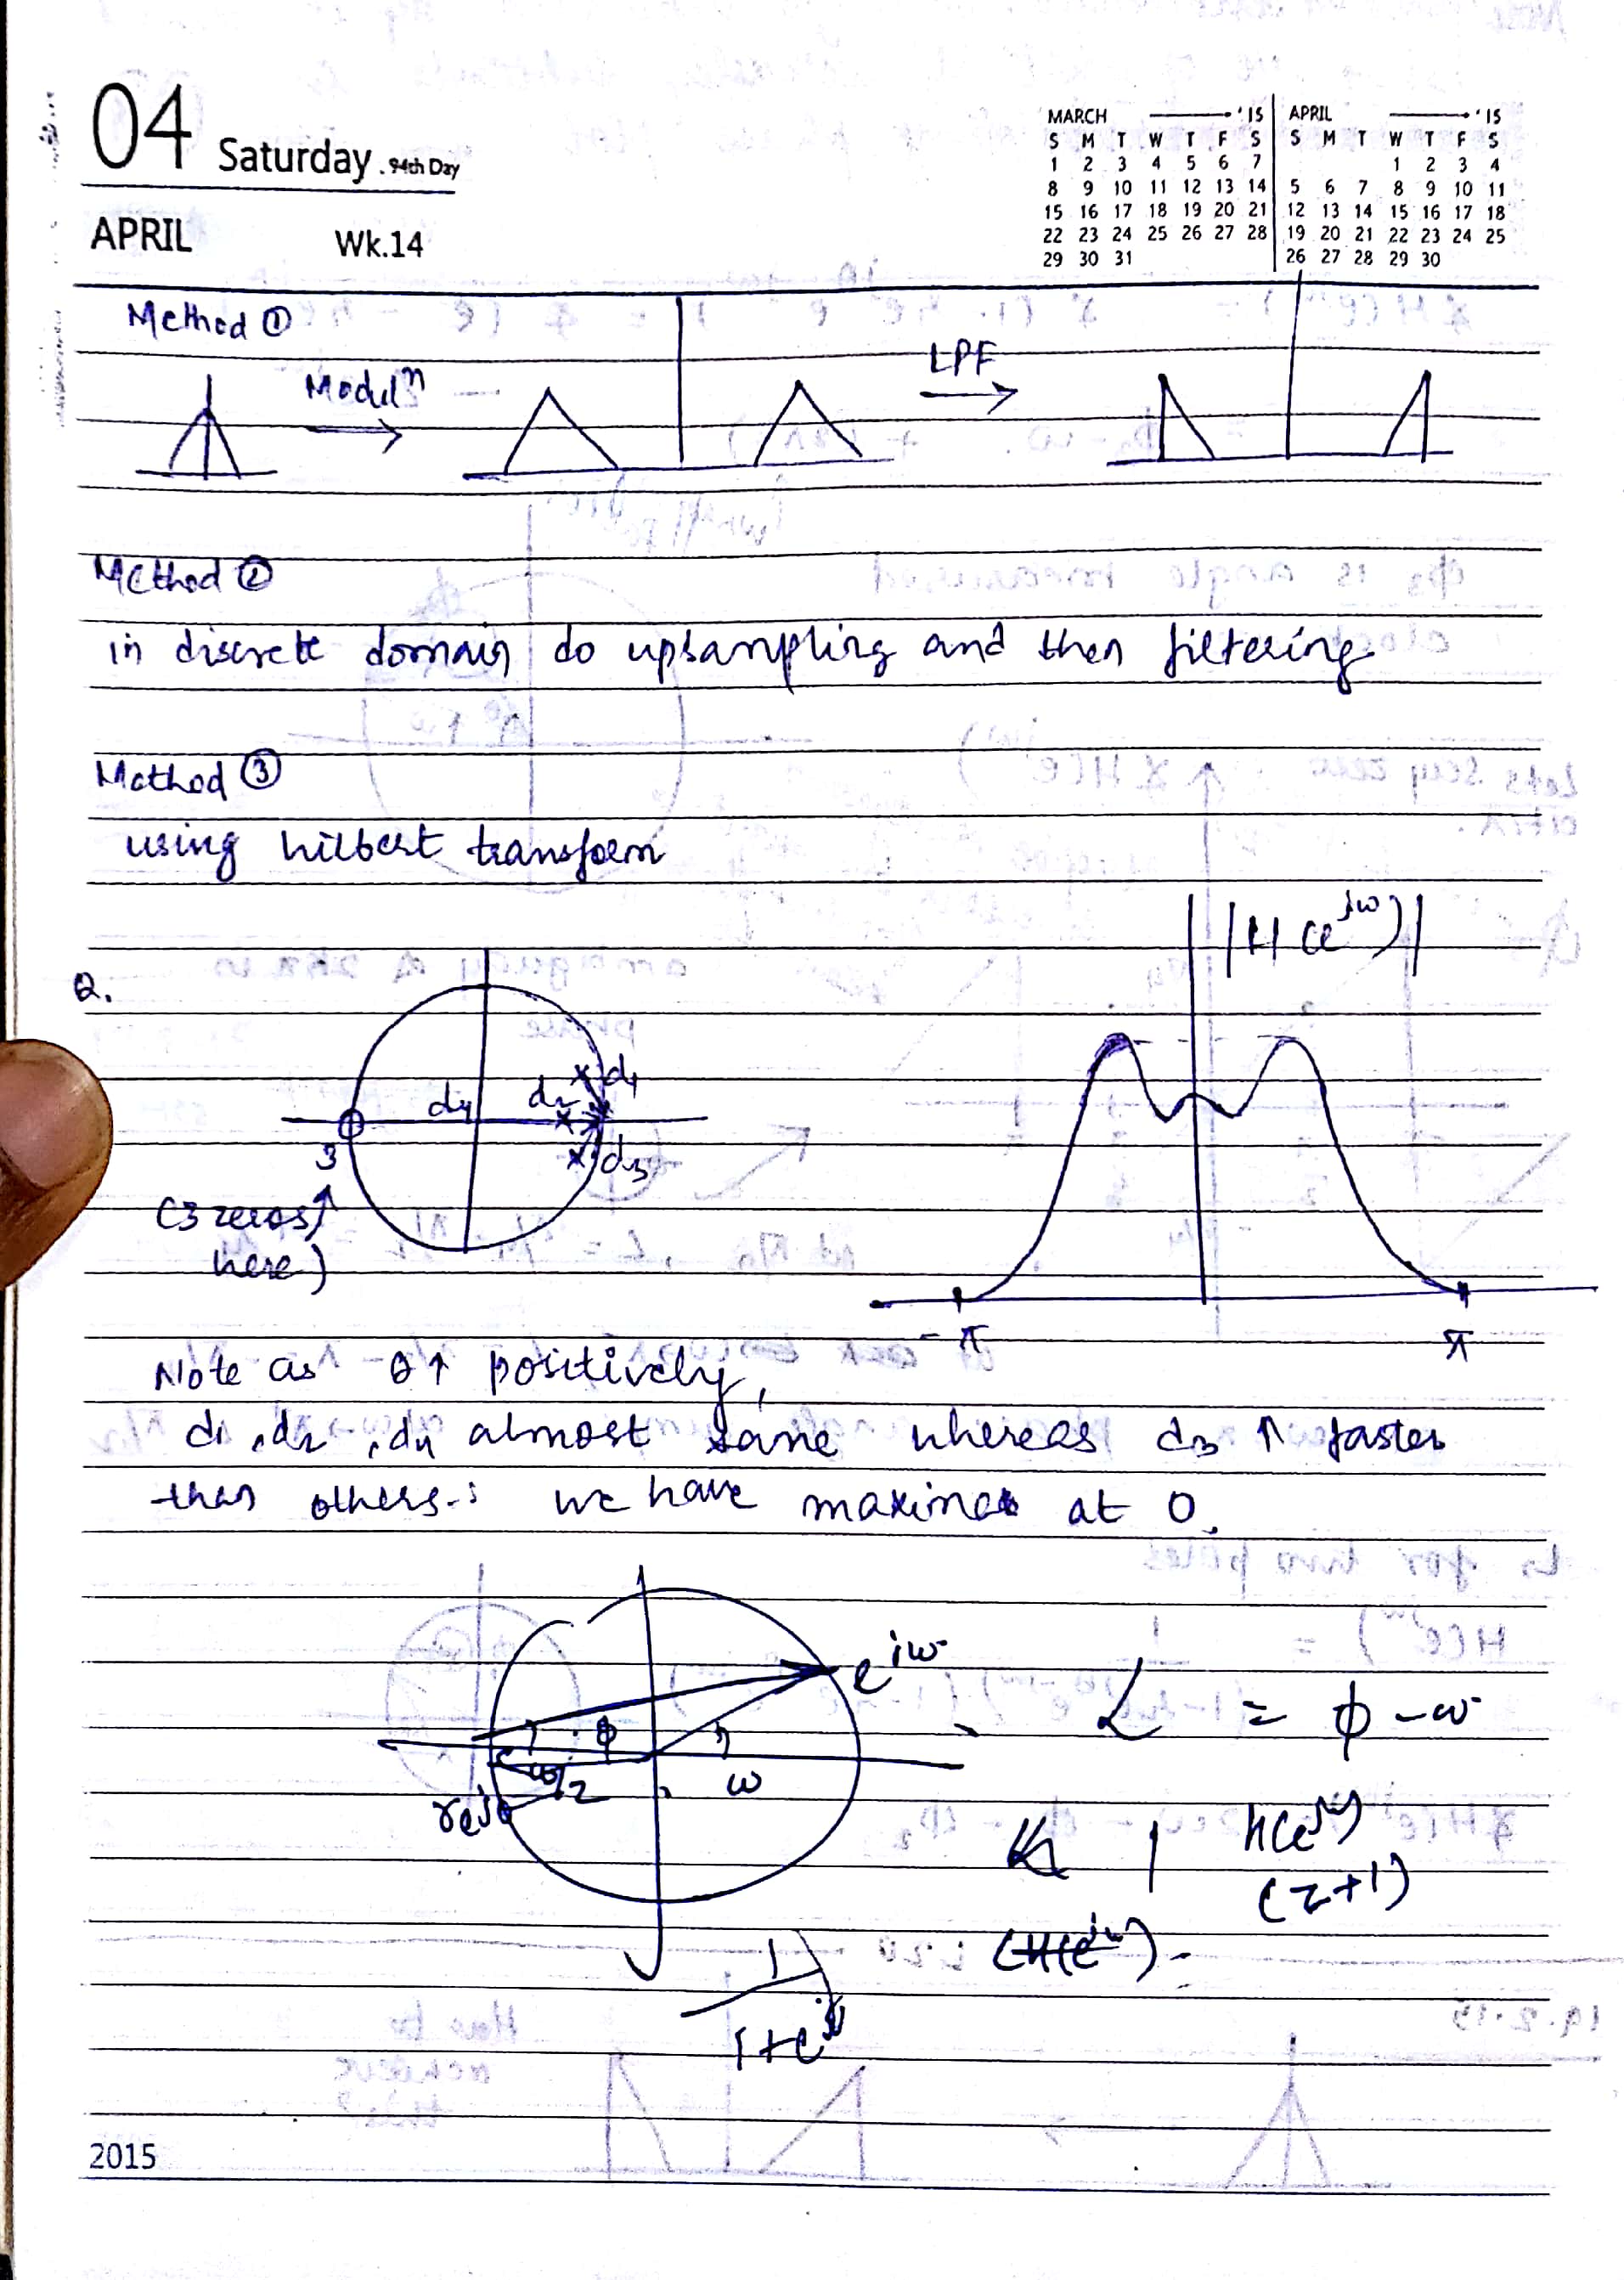 04 Saturday . 94th Day
APRIL Wk.14
MARCH '15
S M T W T F S
1 2 3 4 5 6 7
8 9 10 11 12 13 14
15 16 17 18 19 20 21
22 23 24 25 26 27 28
29 30 31
APRIL '15
S M T W T F S
1 2 3 4
5 6 7 8 9 10 11
12 13 14 15 16 17 18
19 20 21 22 23 24 25
26 27 28 29 30
Method ①
Modulⁿ
LPF
Method ②
in discrete domain do upsampling and then filtering
Method ③
using hilbert transform
|H(e^jω)|
Q.
d1
d4 d2
3 d3
(3 zeros ↑
here)
-π π
Note as θ↑ positively,
d1, d2, d4 almost same whereas d3 ↑ faster
than others ∴ we have maxima at 0.
e^jω
∠ = ϕ - ω
ϕ
ω/2 ω
re^jθ
H(e^jω)
(z+1)
(H(e^jω)) -
1
1+e^jω
2015